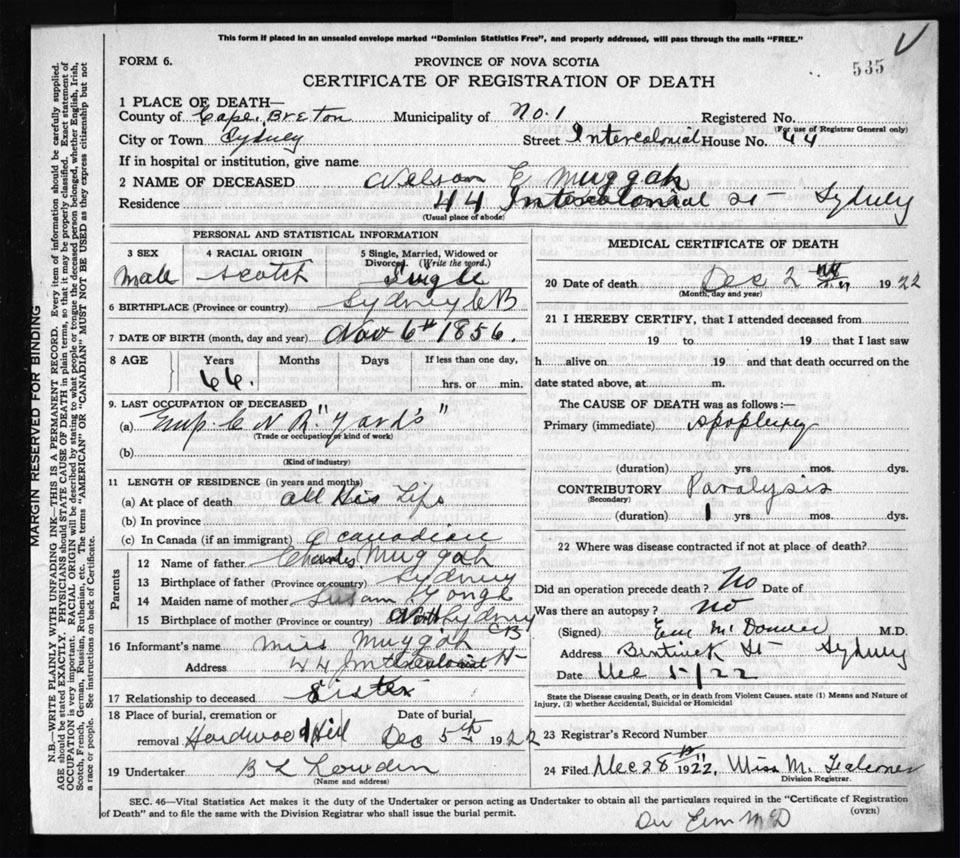 This form if placed in an unsealed envelope marked "Dominion Statistics Free", and properly addressed, will pass through the mails "FREE."
FORM 6.
PROVINCE OF NOVA SCOTIA
535
CERTIFICATE OF REGISTRATION OF DEATH
1 PLACE OF DEATH—
County of Cape Breton Municipality of No. 1 Registered No.
(For use of Registrar General only)
City or Town Sydney Street Intercolonial House No. 44
If in hospital or institution, give name
2 NAME OF DECEASED Nelson E Muggah
Residence 44 Intercolonial St - Sydney
(Usual place of abode)
PERSONAL AND STATISTICAL INFORMATION
3 SEX 4 RACIAL ORIGIN 5 Single, Married, Widowed or Divorced. (Write the word.)
Male Scotch Single
6 BIRTHPLACE (Province or country) Sydney CB
7 DATE OF BIRTH (month, day and year) Nov 6th 1856.
8 AGE Years Months Days If less than one day,
66. hrs. or min.
9. LAST OCCUPATION OF DECEASED
(a) Emp. C N R. "Yards"
(Trade or occupation or kind of work)
(b)
(Kind of industry)
11 LENGTH OF RESIDENCE (in years and months)
(a) At place of death all His Life
(b) In province
(c) In Canada (if an immigrant) Canadian
Parents
12 Name of father Charles Muggah
13 Birthplace of father (Province or country) Sydney
14 Maiden name of mother Susan Yonge
15 Birthplace of mother (Province or country) North Sydney CB
16 Informant's name Miss Muggah
Address 44 Intercolonial St
17 Relationship to deceased Sister
18 Place of burial, cremation or removal Hardwood Hill Date of burial Dec 5th 1922
19 Undertaker B L Lowden
(Name and address)
MEDICAL CERTIFICATE OF DEATH
20 Date of death Dec 2nd 1922
(Month, day and year)
21 I HEREBY CERTIFY, that I attended deceased from
19 to 19 that I last saw
h alive on 19 and that death occurred on the
date stated above, at m.
The CAUSE OF DEATH was as follows:—
Primary (immediate) Apoplexy
(duration) yrs. mos. dys.
CONTRIBUTORY Paralysis
(Secondary)
(duration) 1 yrs. mos. dys.
22 Where was disease contracted if not at place of death?
Did an operation precede death? No Date of
Was there an autopsy? no
(Signed) M.D.
Address Bentinck St Sydney
Date Dec 5/22
State the Disease causing Death, or in death from Violent Causes, state (1) Means and Nature of Injury, (2) whether Accidental, Suicidal or Homicidal
23 Registrar's Record Number
24 Filed Dec 28th 1922, Miss M. Falconer
Division Registrar.
SEC. 46—Vital Statistics Act makes it the duty of the Undertaker or person acting as Undertaker to obtain all the particulars required in the "Certificate of Registration of Death" and to file the same with the Division Registrar who shall issue the burial permit.
(OVER)
MARGIN RESERVED FOR BINDING
N.B.—WRITE PLAINLY WITH UNFADING INK—THIS IS A PERMANENT RECORD. Every item of information should be carefully supplied.
AGE should be stated EXACTLY. PHYSICIANS should STATE CAUSE OF DEATH in plain terms, so that it may be properly classified. Exact statement of
OCCUPATION is very important. RACIAL ORIGIN will be described by stating to what people or tongue the deceased person belonged, whether English, Irish,
Scotch, French, German, Russian, Ruthenian, etc. The terms "AMERICAN" OR "CANADIAN" MUST NOT BE USED as they express citizenship but not
a race or people. See instructions on back of Certificate.